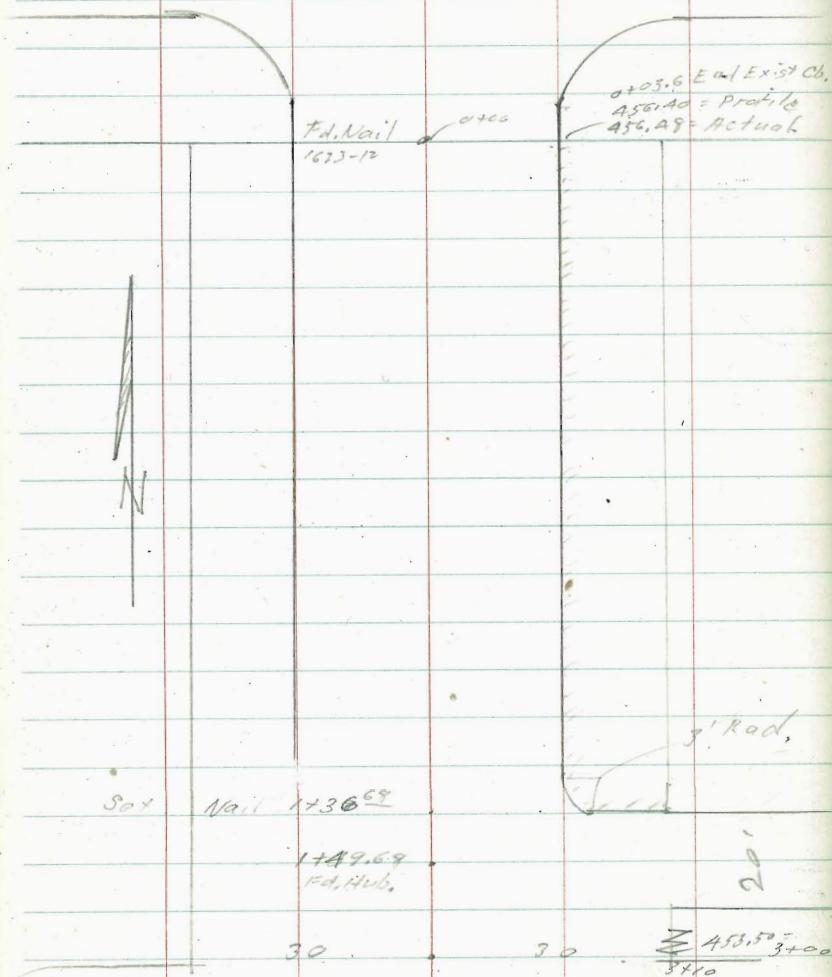 0+03.6 End Exist Cb.
456.40 = Profile
456.48 = Actual
Fd. Nail
1633-12
0+00
N
3' Rad.
Set Nail 1+36 69
1+49.69
Fd. Hub.
20'
30 30
453.50 = 3+00
3+10